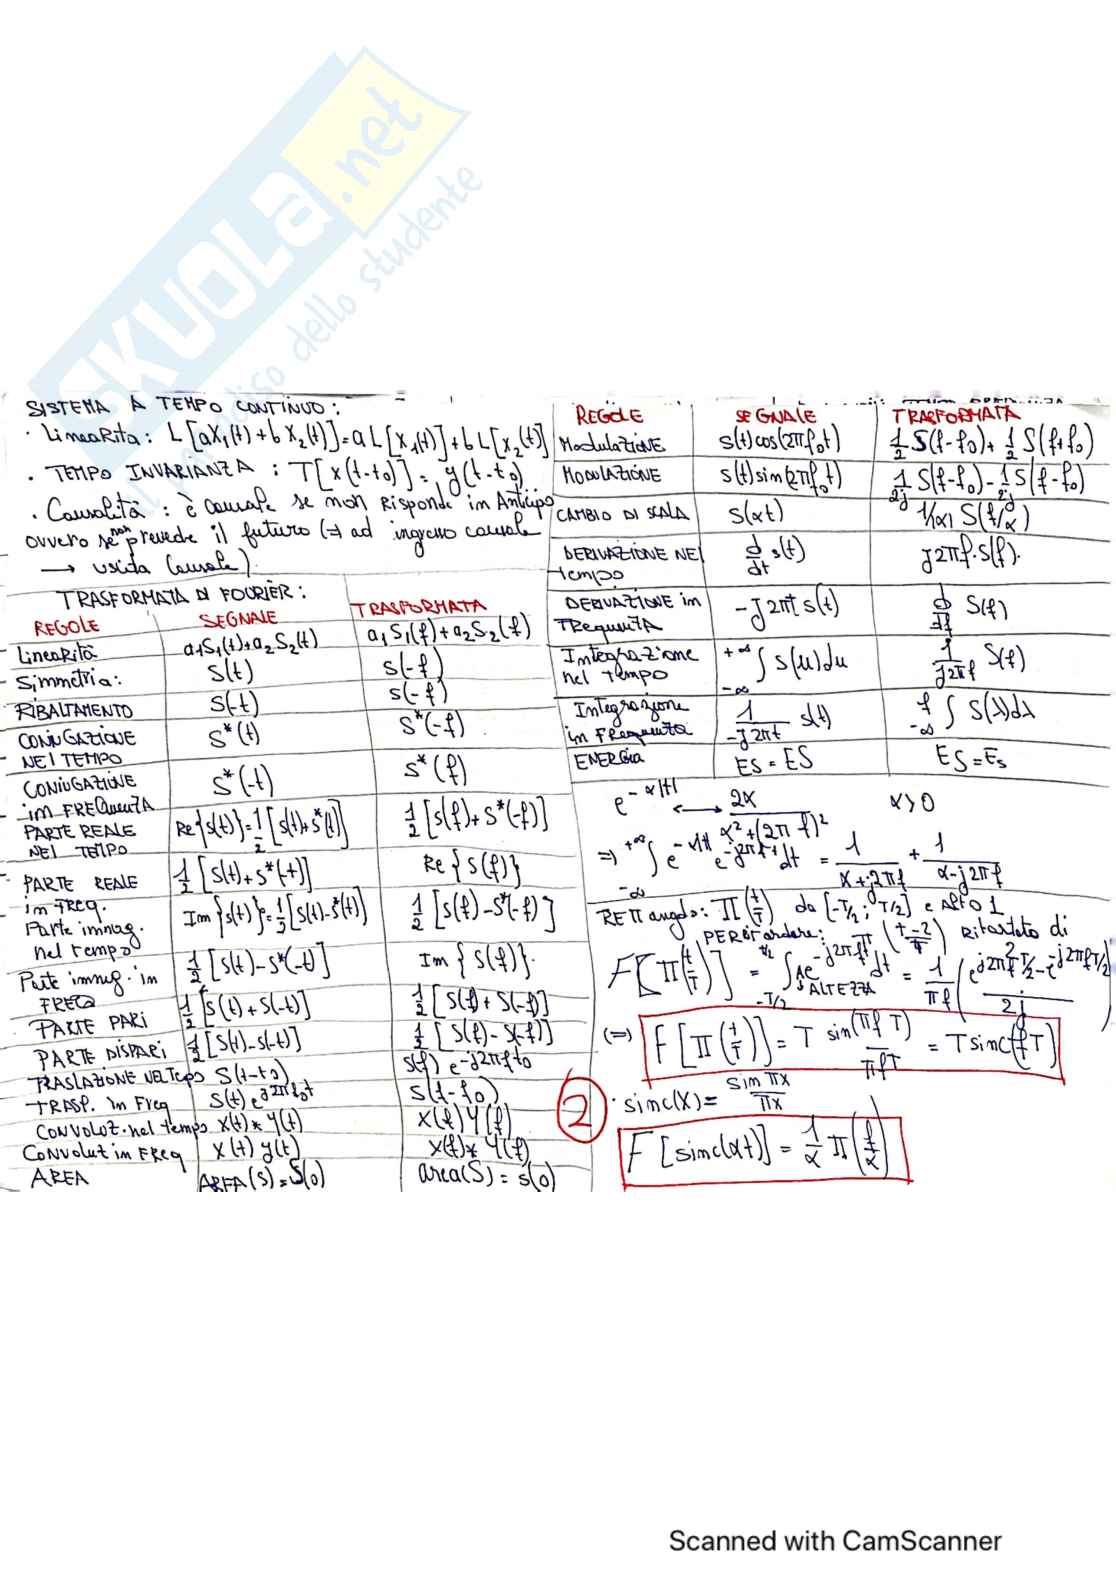 SKUOLA.net
paradiso dello studente
SISTEMA A TEMPO CONTINUO:
· LineaRità: L[aX₁(t)+bX₂(t)]=aL[x₁(t)]+bL[x₂(t)]
· TEMPO INVARIANZA: T[x(t-t₀)]=y(t-t₀)
· Causalità: è causale se non Risponde in Anticipo
ovvero se non prevede il futuro (⇒ ad ingresso causale
→ uscita Causale).
TRASFORMATA DI FOURIER:
REGOLE SEGNALE TRASFORMATA
LineaRità a₁S₁(t)+a₂S₂(t) a₁S₁(f)+a₂S₂(f)
Simmetria: S(t) s(-f)
RIBALTAMENTO S(-t) s(-f)
CONIUGAZIONE NEL TEMPO S*(t) S*(-f)
CONIUGAZIONE im FREQuenzA S*(-t) S*(f)
PARTE REALE NEL TEMPO Re{s(t)}=1/2[s(t)+S*(t)] 1/2[s(f)+S*(-f)]
PARTE REALE in FREQ. 1/2[S(t)+S*(-t)] Re{S(f)}
Parte immag. nel tempo Im{s(t)}=1/2[S(t)-S*(t)] 1/2[s(f)-S*(-f)]
Parte immag. in FREQ 1/2[S(t)-S*(-t)] Im{S(f)}.
PARTE PARI 1/2[S(t)+S(-t)] 1/2[S(f)+S(-f)]
PARTE DISPARI 1/2[S(t)-S(-t)] 1/2[S(f)-S(-f)]
TRASLAZIONE NEL Tempo S(t-t₀) S(f) e^-j2πft₀
TRASP. in Freq S(t)e^j2πf₀t S(f-f₀)
CONVOLUZ. nel tempo x(t)*Y(t) X(f)Y(f)
Convolut in FReq X(t)y(t) X(f)*Y(f)
AREA AREA(s)=S(0) area(S)=s(0)
REGOLE SEGNALE TRASFORMATA
Modulazione S(t)cos(2πf₀t) 1/2 S(f-f₀)+1/2 S(f+f₀)
MODULAZIONE S(t)sin(2πf₀t) 1/2j S(f-f₀)-1/2j S(f-f₀)
CAMBIO DI SCALA S(αt) 1/|α| S(f/α)
DERIVAZIONE NEL tempo d/dt s(t) j2πf·S(f).
DERIVAZIONE im FRequenzA -j2πt s(t) d/df S(f)
Integrazione nel tempo +∞∫-∞ s(u)du 1/j2πf S(f)
Integrazione in FRequenza 1/-j2πt s(t) f∫-∞ S(λ)dλ
ENERGIA ES=ES ES=Es
e^-α|t| ⟷ 2α/α²+(2πf)² α>0
⇒ +∞∫-∞ e^-α|t| e^-j2πft dt = 1/α+j2πf + 1/α-j2πf
RETTangolo: Π(t/T) da [-T/2; T/2] e Alto 1
PER Ritardare: Π(t-2/4) Ritardato di 2
F[Π(t/T)] = T/2∫-T/2 A e^-j2πft dt = 1/πf (e^j2πfT/2 - e^-j2πfT/2 / 2j)
ALTEZZA
(⇒) F[Π(t/T)]=T sin(πfT)/πfT = T sinc(fT)
② · sinc(X)= sin πx/πx
F[sinc(αt)]=1/α Π(f/α)
Scanned with CamScanner